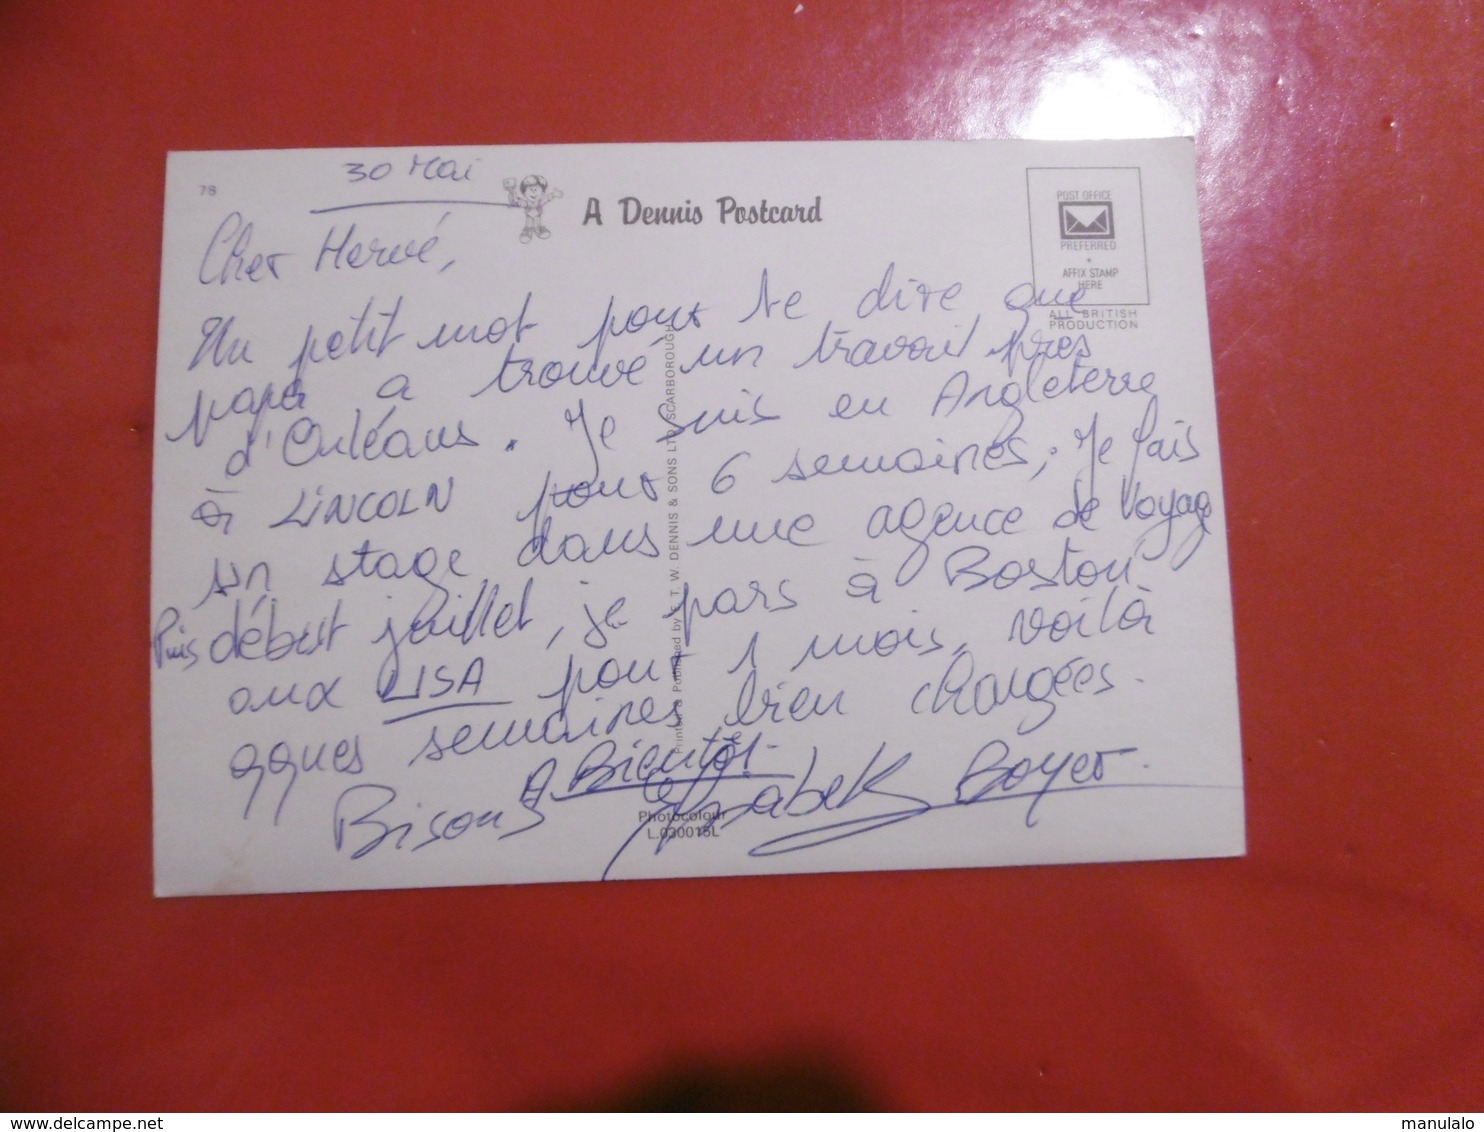 78
30 Mai
A Dennis Postcard
POST OFFICE
PREFERRED
AFFIX STAMP
HERE
ALL BRITISH
PRODUCTION
Cher Hervé,
Un petit mot pour te dire que
papa a trouvé un travail près
d'Orléans. Je suis en Angleterre
à LINCOLN pour 6 semaines, Je fais
un stage dans une agence de voyage
Puis début juillet, je pars à Boston
aux USA pour 1 mois, voilà
qques semaines bien chargées.
A Bientôt.
Bisous Elisabeth Boyer.
Printed & Published by E. T. W. DENNIS & SONS LTD SCARBOROUGH
Photocolour
L.030015L
delcampe.net
manulalo